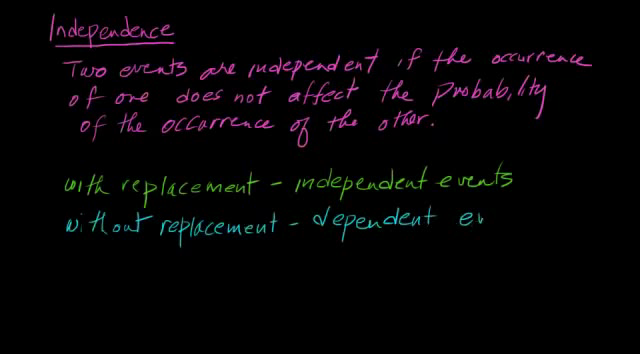 Independence
Two events are independent if the occurrence
of one does not affect the probability
of the occurrence of the other.
with replacement - independent events
without replacement - dependent ev